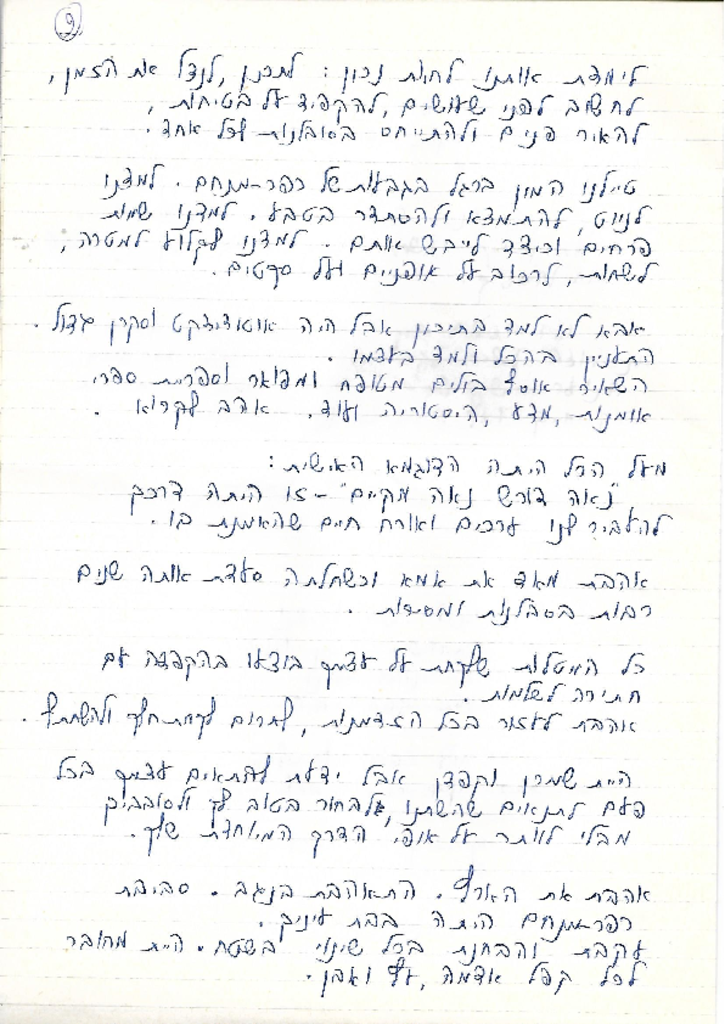 9
לימדת אותנו לחיות נכון: לתכנן, לנצל את הזמן,
לחשוב לפני שעושים, להקפיד על בטיחות,
להאיר פנים ולהתייחס בסובלנות לכל אחד.
טיילנו המון ברגל בגבעות של כפר-מנחם. למדנו
לנווט, להתמצא ולהסתדר בטבע. למדנו שמות
פרחים וכיצד לייבש אותם. למדנו לקלוע למטרה,
לשחות, לרכוב על אופניים ועל סקטים.
אבא לא למד בתיכון אבל היה אוטודידקט וסקרן גדול.
התעניין בהכל ולמד בעצמו.
השאיר אוסף בולים מטופח ומפואר וספריית ספרי
אומנות, מדע, היסטוריה ועוד. אהב לקרוא.
מעל הכל היתה הדוגמא האישית:
"נאה דורש נאה מקיים" - זו היתה דרכך
להעביר לנו ערכים ואורח חיים שהאמנת בו.
אהבת מאד את אמא וכשחלתה סעדת אותה שנים
רבות בסבלנות ומסירות.
כל המטלות שלקחת על עצמך בוצעו בהקפדה עם
חתירה לשלמות.
אהבת לעזור בכל הזדמנות, לתרום לקחת חלק ולהשתתף.
היית שמרן וקפדן אבל ידעת להתאים עצמך בכל
פעם לתנאים שהשתנו, לבחור בטוב לך ולסובביך
מבלי לוותר על אופי הדרך המיוחדת שלך.
אהבת את הארץ. התאהבת בנגב. סביבת
כפר-מנחם היתה בבת עיניך.
עקבת והבחנת בכל שינוי בשטח. היית מחובר
לכל קפל אדמה, עץ ואבן.